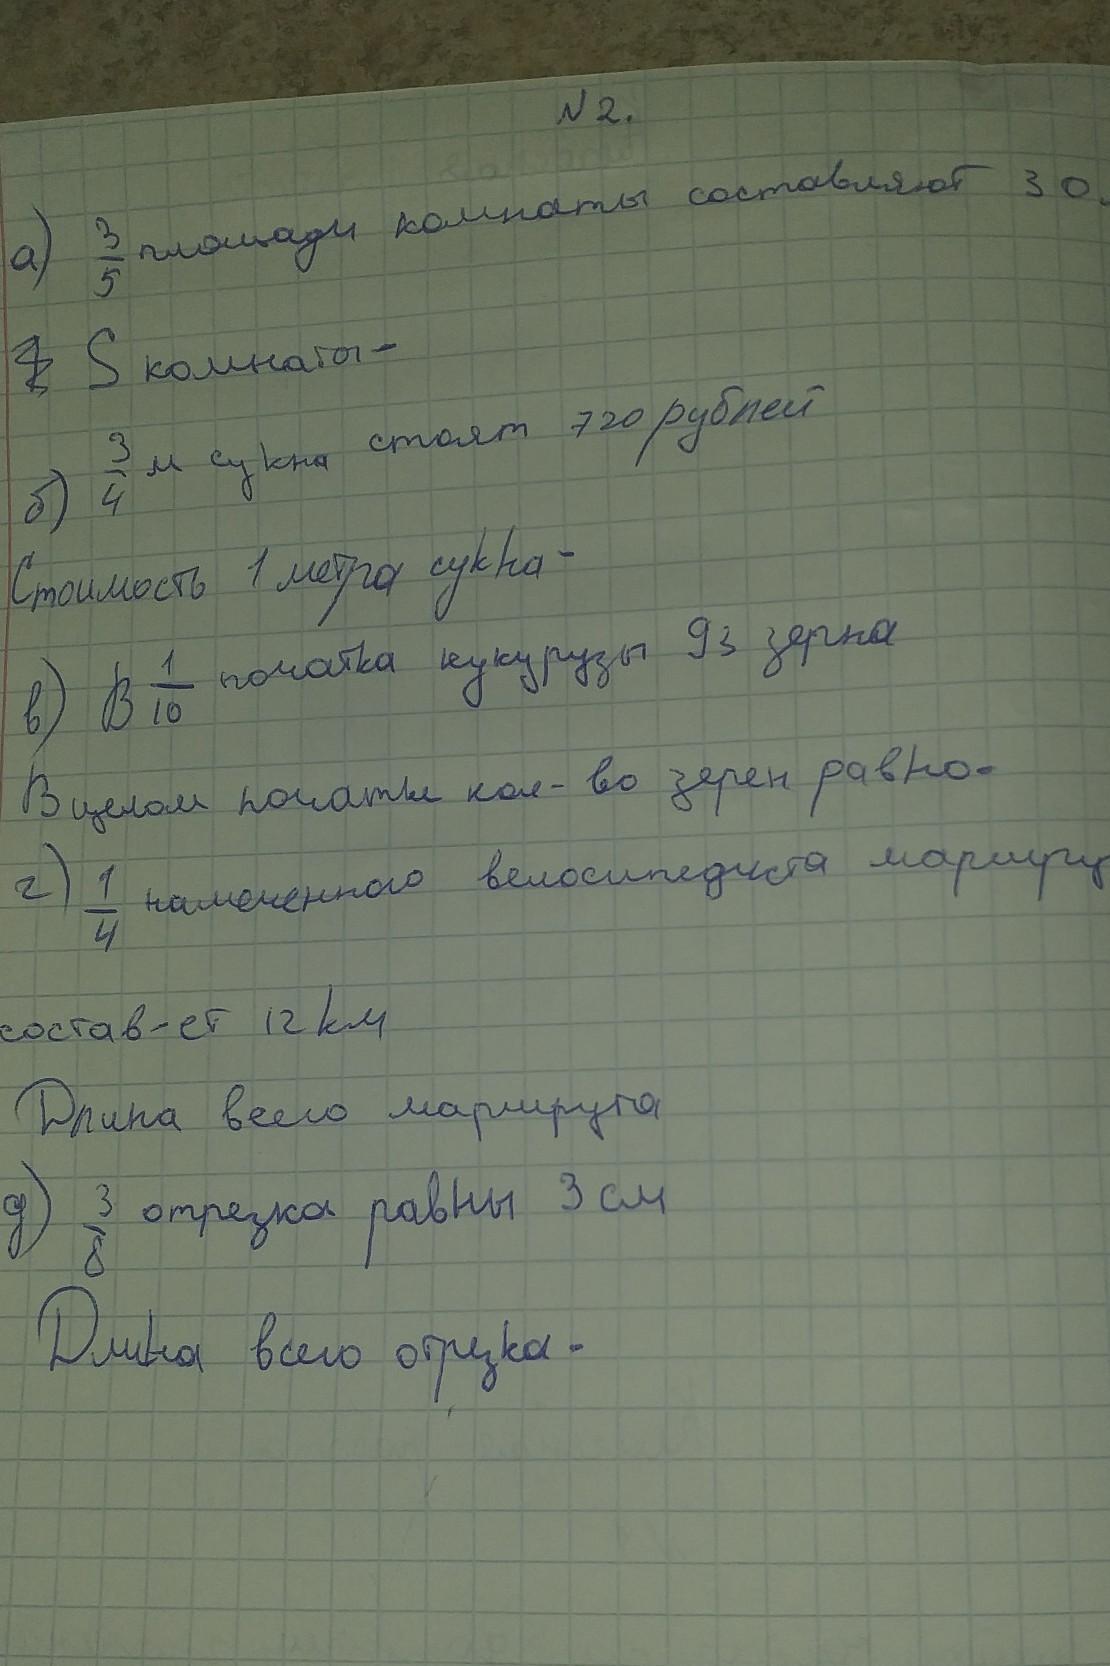 N 2.
а) 3/5 площади комнаты составляют 30
S комнаты-
б) 3/4 м сукна стоят 720 рублей
Стоимость 1 метра сукна-
в) В 1/10 початка кукурузы 93 зерна
В целом початке кол-во зерен равно-
г) 1/4 намеченного велосипедиста маршру
состав-ет 12 км
Длина всего маршрута
д) 3/8 отрезка равны 3 см
Длина всего отрезка-